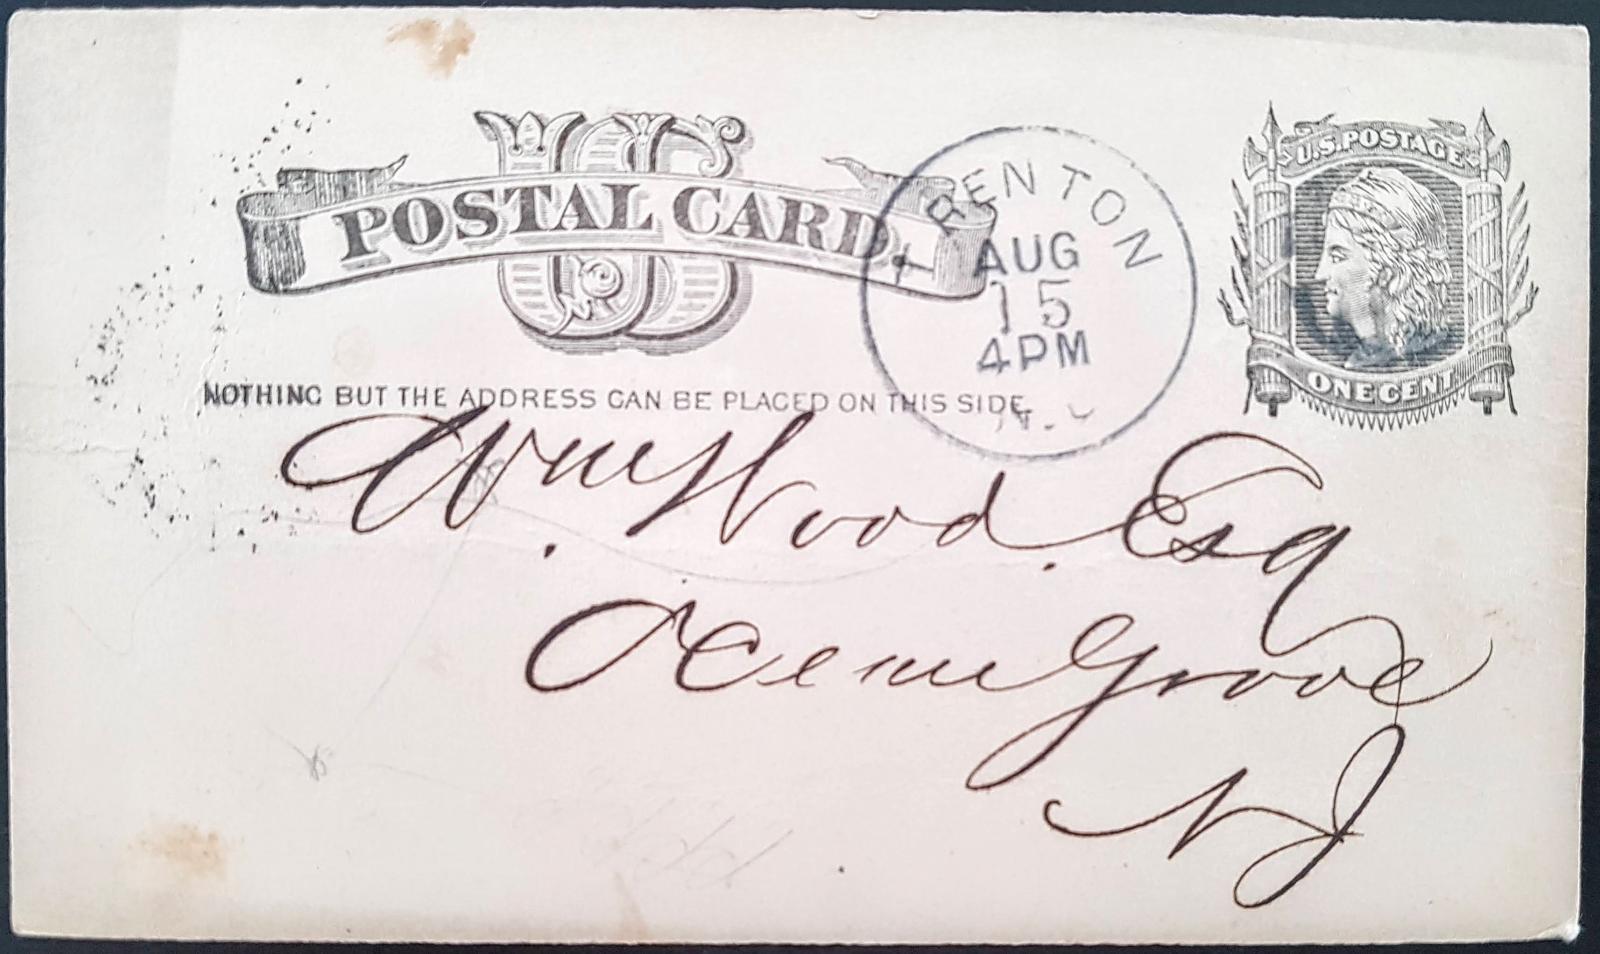 US
POSTAL CARD.
TRENTON
AUG
15
4PM
N.J.
U.S. POSTAGE
ONE CENT
NOTHING BUT THE ADDRESS CAN BE PLACED ON THIS SIDE.
Wm Wood. Esq
Ocean Grove
NJ